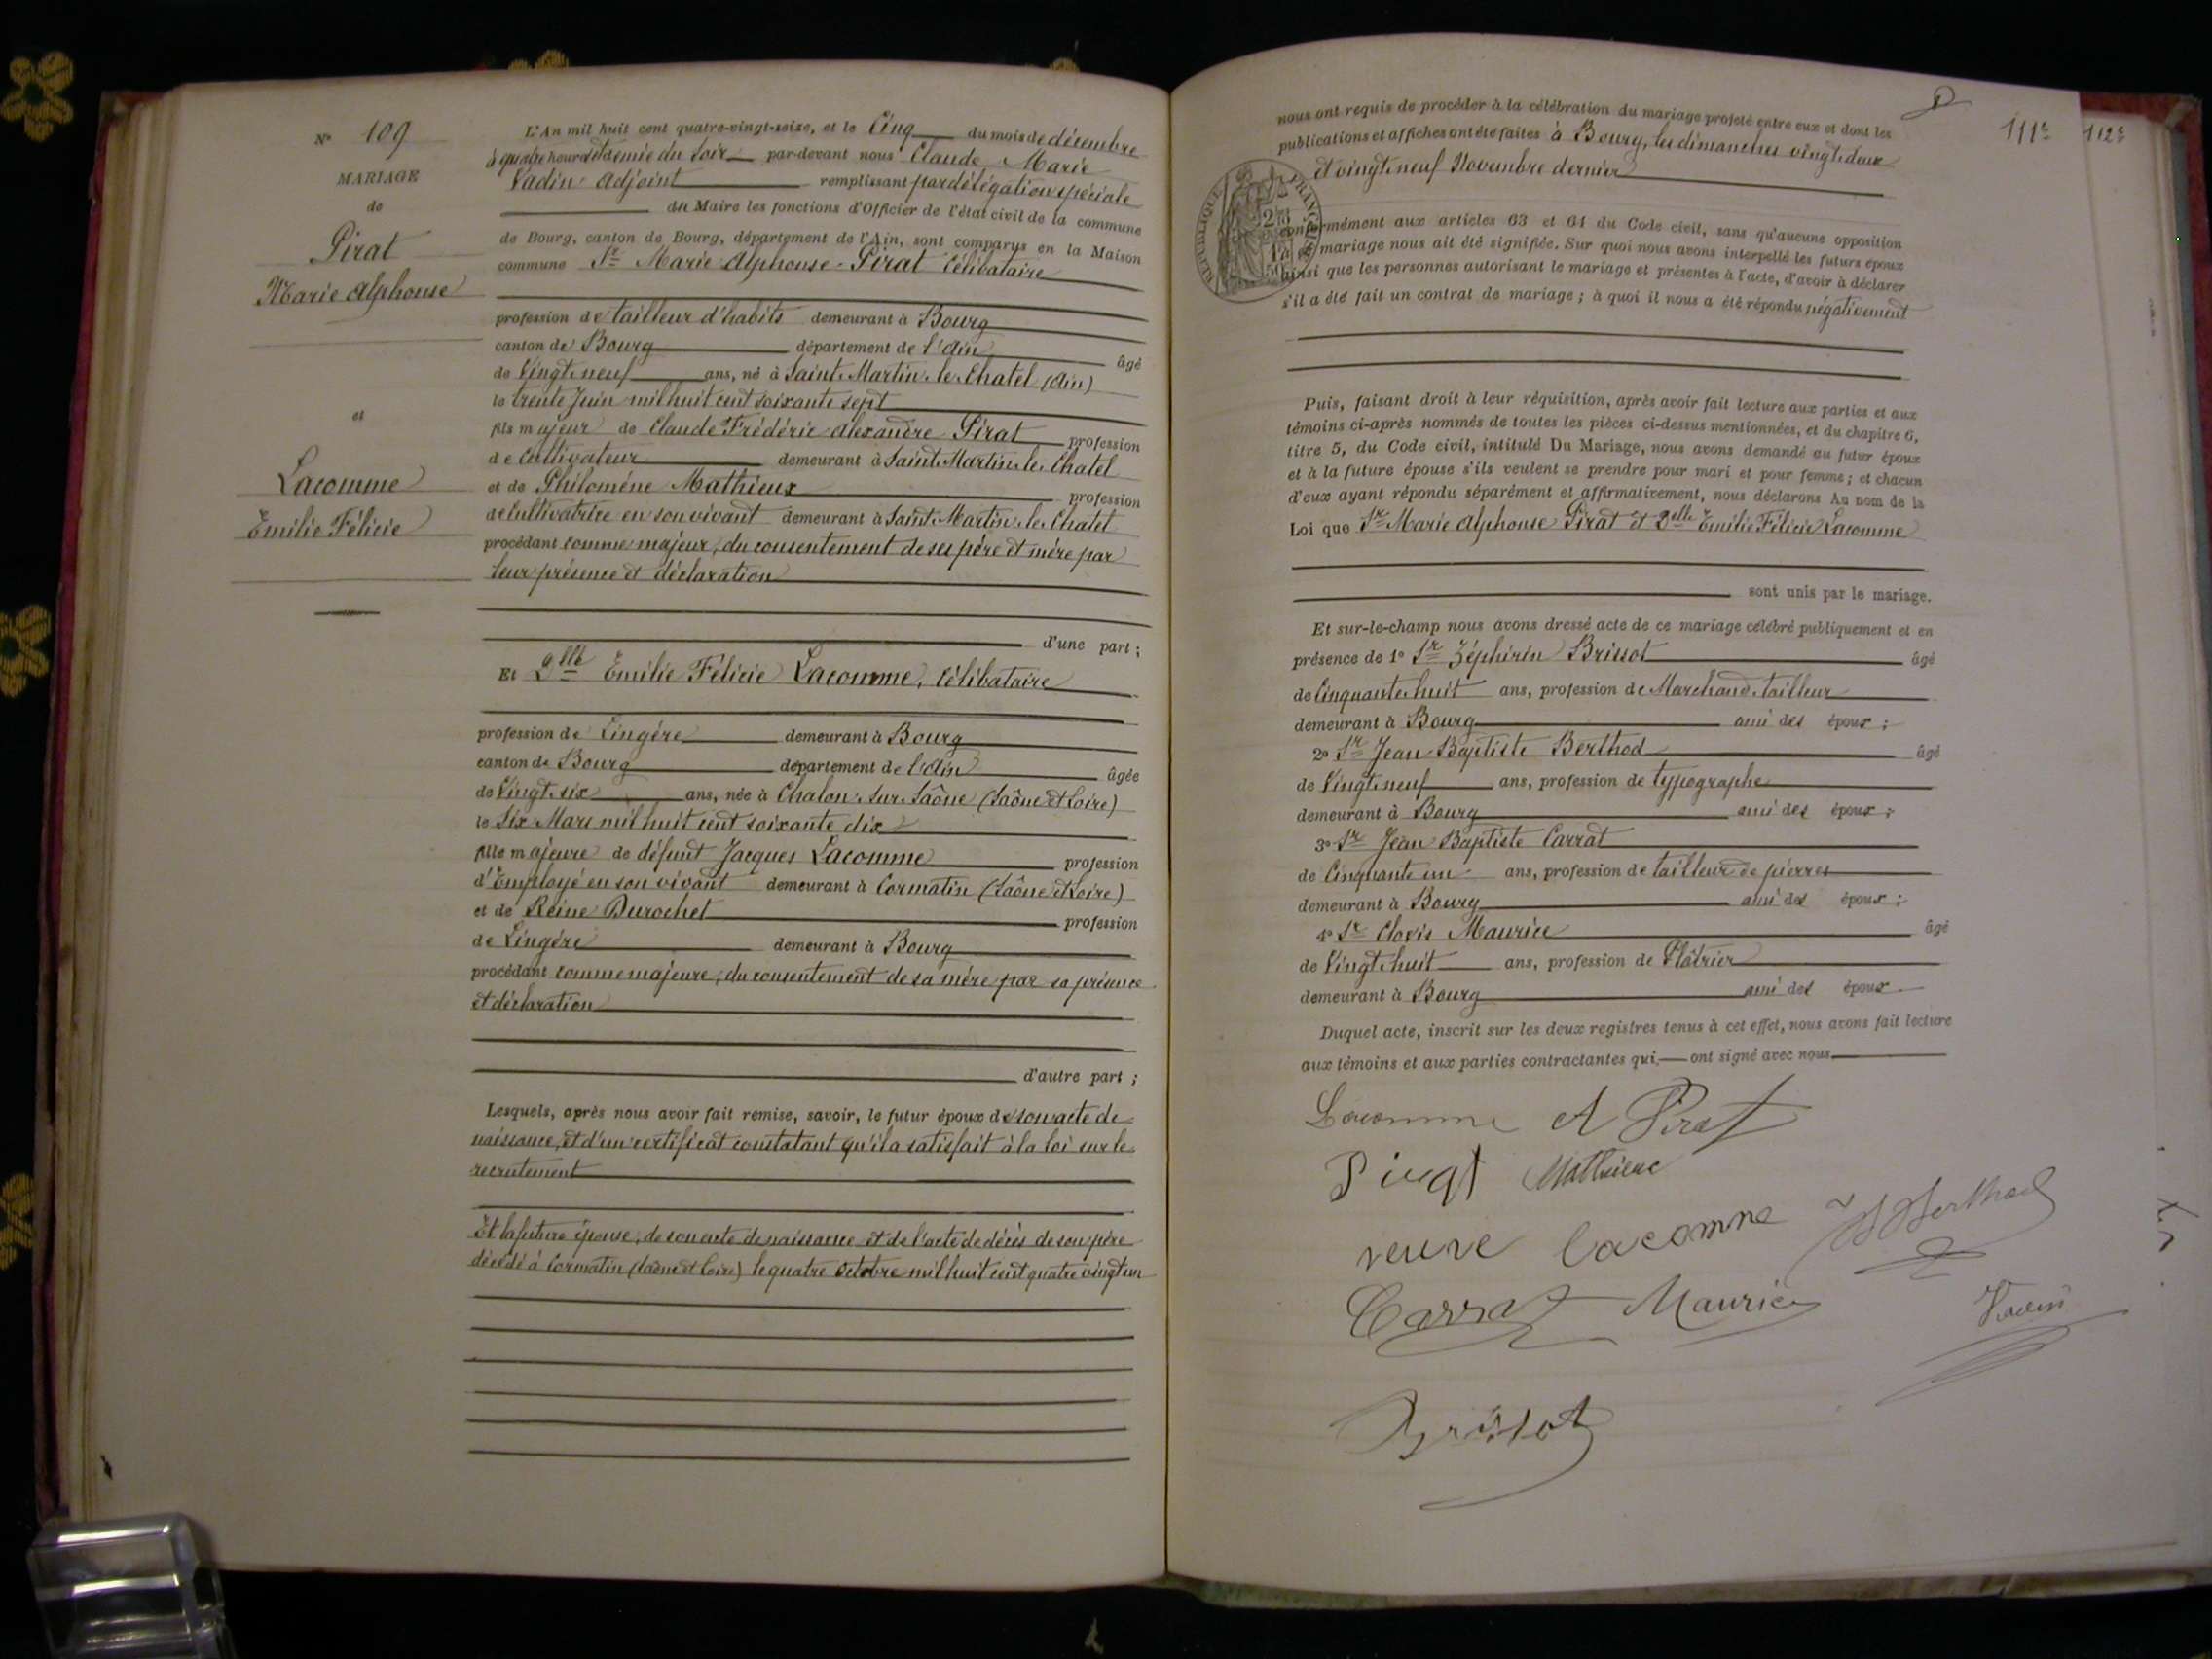 N° 109
MARIAGE
de
Pirat
Marie Alphonse
et
Lacomme
Emilie Félicie
L'An mil huit cent quatre-vingt-seize, et le Cinq du mois de décembre
à quatre heures et demie du soir par-devant nous Claude Marie
Vadin Adjoint remplissant par délégation spéciale
du Maire les fonctions d'Officier de l'état civil de la commune
de Bourg, canton de Bourg, département de l'Ain, sont comparus en la Maison
commune Sr Marie Alphonse Pirat Célibataire
profession de tailleur d'habits demeurant à Bourg
canton de Bourg département de l'Ain âgé
de Vingt neuf ans, né à Saint Martin le Chatel (Ain)
le trente Juin mil huit cent soixante sept
fils majeur de Claude Frédéric Alexandre Pirat profession
de Cultivateur demeurant à Saint Martin le Chatel
et de Philomène Mathieux profession
de Cultivatrice en son vivant demeurant à Saint Martin le Chatel
procédant comme majeur, du consentement de ses père et mère par
leur présence et déclaration
d'une part ;
Et Delle Emilie Félicie Lacomme, Célibataire
profession de Lingère demeurant à Bourg
canton de Bourg département de l'Ain âgée
de Vingt six ans, née à Chalon sur Saône (Saône et Loire)
le Six Mars mil huit cent soixante dix
fille majeure de défunt Jacques Lacomme profession
d'Employé en son vivant demeurant à Cormatin (Saône et Loire)
et de Reine Durochet profession
de Lingère demeurant à Bourg
procédant comme majeure, du consentement de sa mère par sa présence
et déclaration
d'autre part ;
Lesquels, après nous avoir fait remise, savoir, le futur époux de son acte de
naissance, et d'un certificat constatant qu'il a satisfait à la loi sur le
recrutement
Et la future épouse, de son acte de naissance et de l'acte de décès de son père
décédé à Cormatin (Saône et Loire) le quatre Octobre mil huit cent quatre vingt un
111e 112e
nous ont requis de procéder à la célébration du mariage projeté entre eux et dont les
publications et affiches ont été faites à Bourg, les dimanches vingt deux
et vingt neuf Novembre dernier
REPUBLIQUE FRANÇAISE
conformément aux articles 63 et 64 du Code civil, sans qu'aucune opposition
mariage nous ait été signifiée. Sur quoi nous avons interpellé les futurs époux
ainsi que les personnes autorisant le mariage et présentes à l'acte, d'avoir à déclarer
s'il a été fait un contrat de mariage ; à quoi il nous a été répondu négativement
Puis, faisant droit à leur réquisition, après avoir fait lecture aux parties et aux
témoins ci-après nommés de toutes les pièces ci-dessus mentionnées, et du chapitre 6,
titre 5, du Code civil, intitulé Du Mariage, nous avons demandé au futur époux
et à la future épouse s'ils veulent se prendre pour mari et pour femme ; et chacun
d'eux ayant répondu séparément et affirmativement, nous déclarons Au nom de la
Loi que Sr Marie Alphonse Pirat et Delle Emilie Félicie Lacomme
sont unis par le mariage.
Et sur-le-champ nous avons dressé acte de ce mariage célébré publiquement et en
présence de 1° Sr Zéphirin Brissot âgé
de Cinquante huit ans, profession de Marchand tailleur
demeurant à Bourg ami des époux ;
2° Sr Jean Baptiste Berthod âgé
de Vingt neuf ans, profession de typographe
demeurant à Bourg ami des époux ;
3° Sr Jean Baptiste Carrat
de Cinquante un ans, profession de tailleur de pierres
demeurant à Bourg ami des époux ;
4° Sr Clovis Maurice âgé
de Vingt huit ans, profession de Plâtrier
demeurant à Bourg ami des époux
Duquel acte, inscrit sur les deux registres tenus à cet effet, nous avons fait lecture
aux témoins et aux parties contractantes qui ont signé avec nous
Lacomme A Pirat
Pirat Mathieux
veuve lacomme Berthod
Carrat Maurice Vadin
Brissot